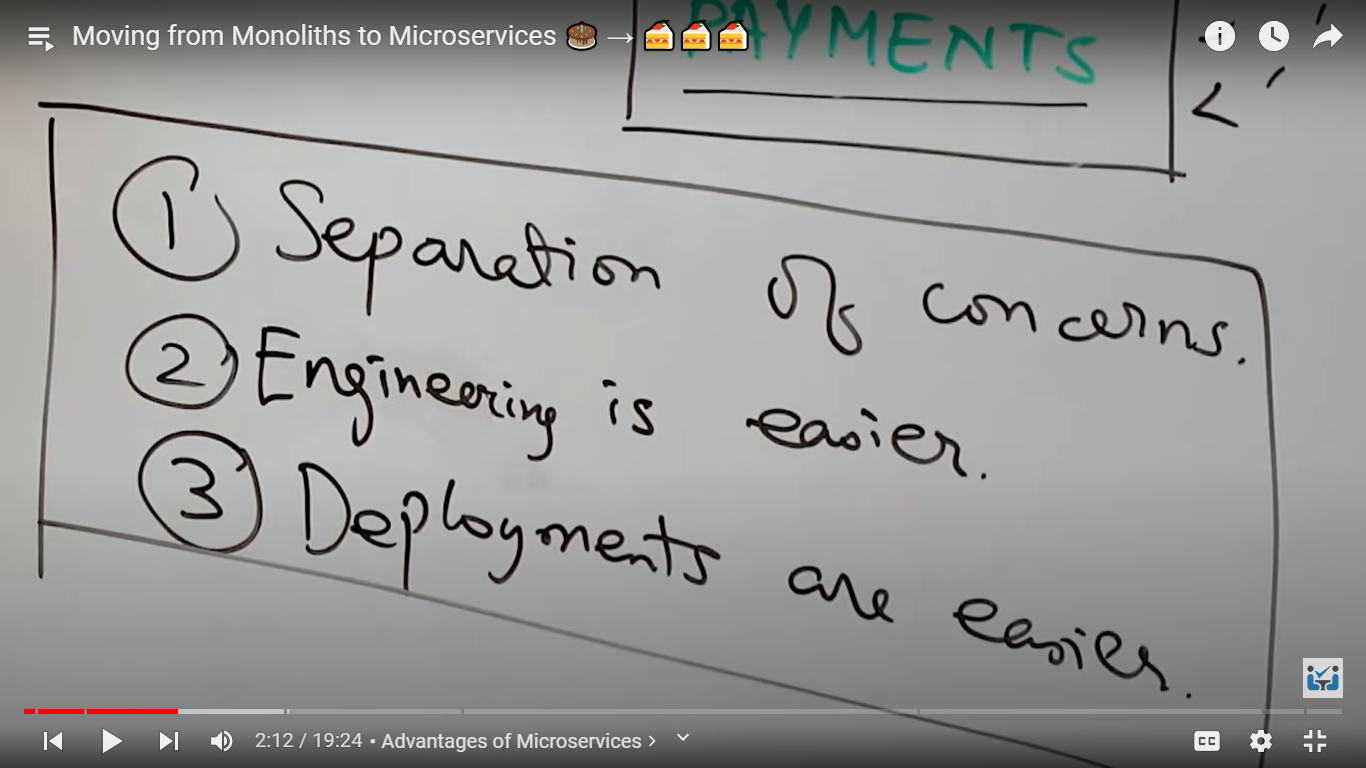 Moving from Monoliths to Microservices 🎂 → 🍰🍰🍰
PAYMENTS
1 Separation of concerns.
2 Engineering is easier.
3 Deployments are easier.
2:12 / 19:24 • Advantages of Microservices >
CC